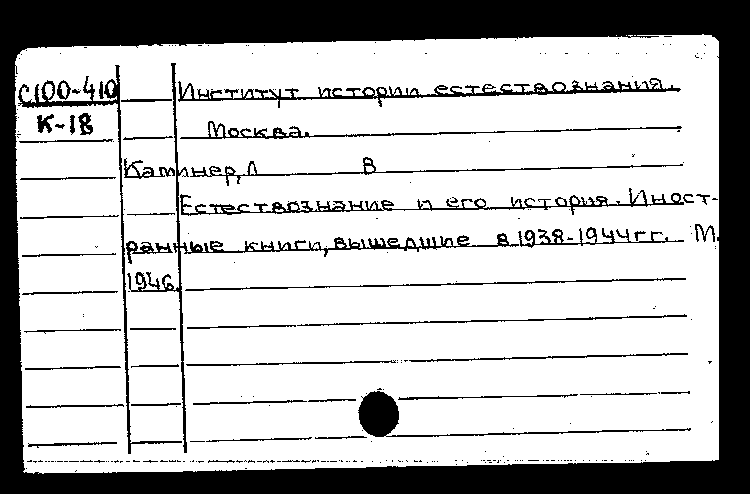 С100-410 Институт истории естествознания.
К-18 Москва.
Каминер, Л В
Естествознание и его история. Иност-
ранные книги, вышедшие в 1938-1944 гг. М.
1946.